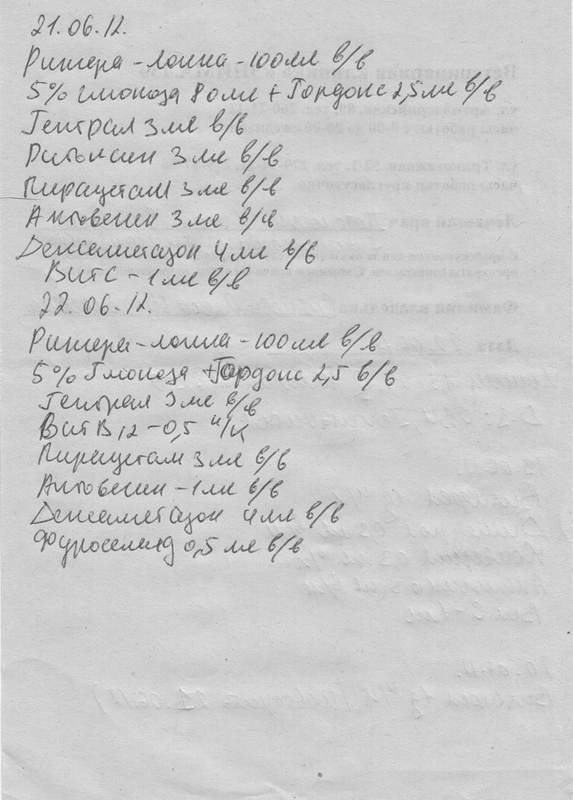 21.06.12.
Рингера-локка-100мл в/в
5% глюкоза 80мл + Гордокс 2,5мл в/в
Гептрал 3мл в/в
3мл в/в
Пирацетам 3мл в/в
Актовегин 3мл в/в
Дексаметазон 4мл в/в
Вит С - 1мл в/в
22.06.12.
Рингера-локка-100мл в/в
5% Глюкоза + Гордокс 2,5 в/в
Гептрал 3мл в/в
Вит В12 - 0,5 п/к
Пирацетам 3мл в/в
Актовегин - 1мл в/в
Дексаметазон 4мл в/в
Фуросемид 0,5мл в/в